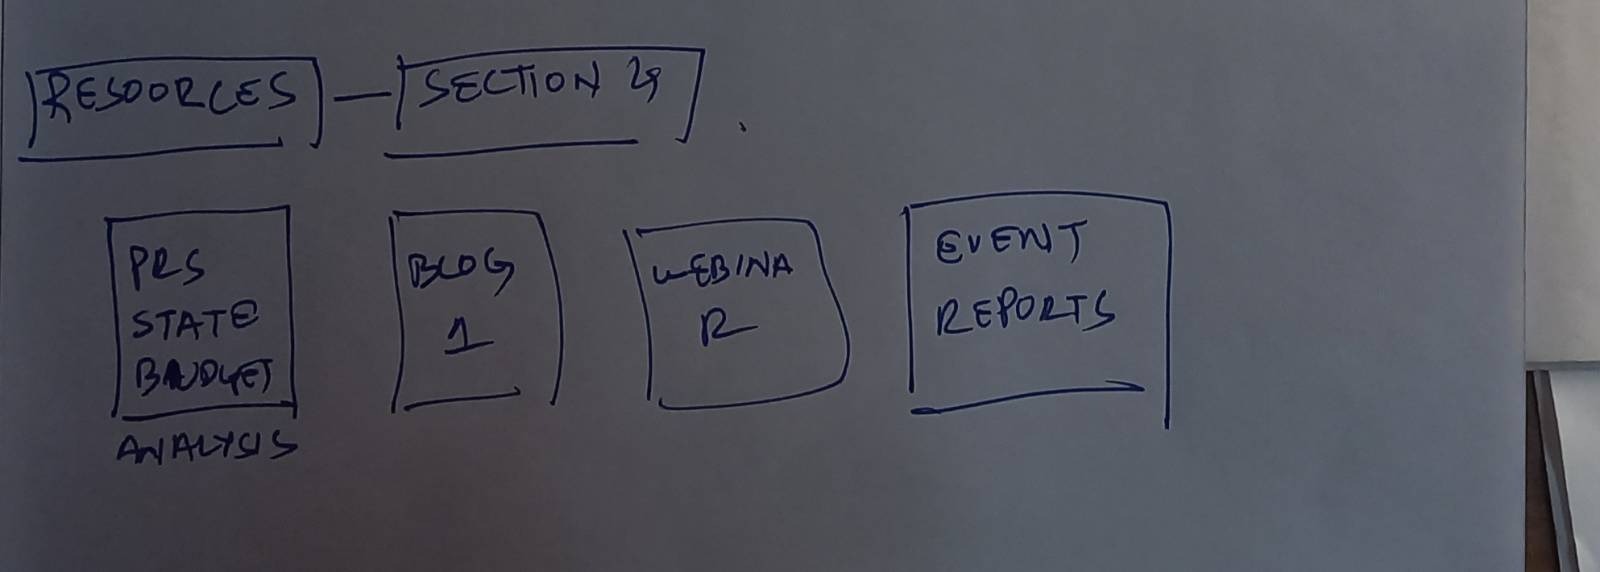 RESOORCES — SECTION 4
PRS
STATE
BUDGET
ANALYSIS
BLOG
1
WEBINA
R
EVENT
REPORTS